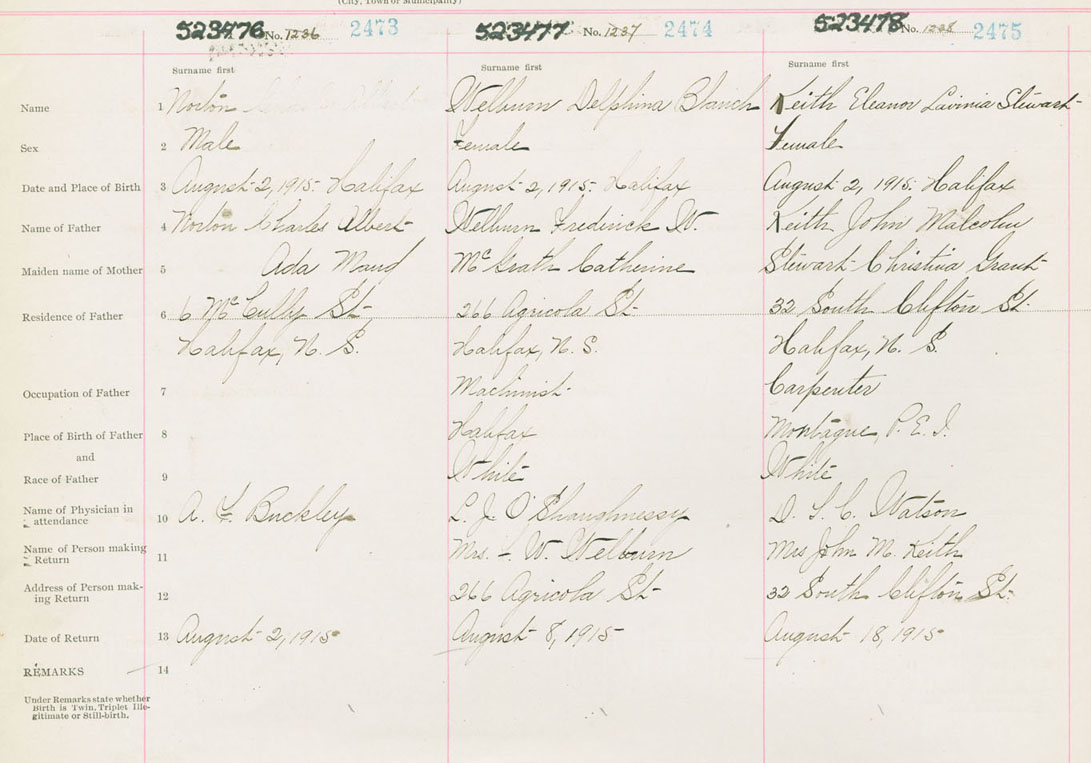 (City, Town or Municipality)
523476 No. 1236 2473 523477 No. 1237 2474 523478 No. 1238 2475
Surname first Surname first Surname first
Name 1 Norton Welburn Delphina Blanch Keith Eleanor Lavinia Stewart
Sex 2 Male Female Female
Date and Place of Birth 3 August 2, 1915. Halifax August 2, 1915. Halifax August 2, 1915. Halifax
Name of Father 4 Norton Charles Albert Welburn Frederick W. Keith John Malcolm
Maiden name of Mother 5 Ada Maud McGrath Catherine Stewart Christina Grant
Residence of Father 6 6 McCully St. 266 Agricola St. 32 South Clifton St.
Halifax, N. S. Halifax, N. S. Halifax, N. S.
Occupation of Father 7 Machinist Carpenter
Place of Birth of Father 8 Halifax Montague, P. E. I.
and
Race of Father 9 White White
Name of Physician in
attendance 10 A. F. Buckley L. J. O'Shaughnessy D. S. C. Watson
Name of Person making
Return 11 Mrs. - W. Welburn Mrs John M. Keith
Address of Person mak-
ing Return 12 266 Agricola St. 32 South Clifton St.
Date of Return 13 August 2, 1915 August 8, 1915 August 18, 1915
REMARKS 14
Under Remarks state whether
Birth is Twin, Triplet Ille-
gitimate or Still-birth.